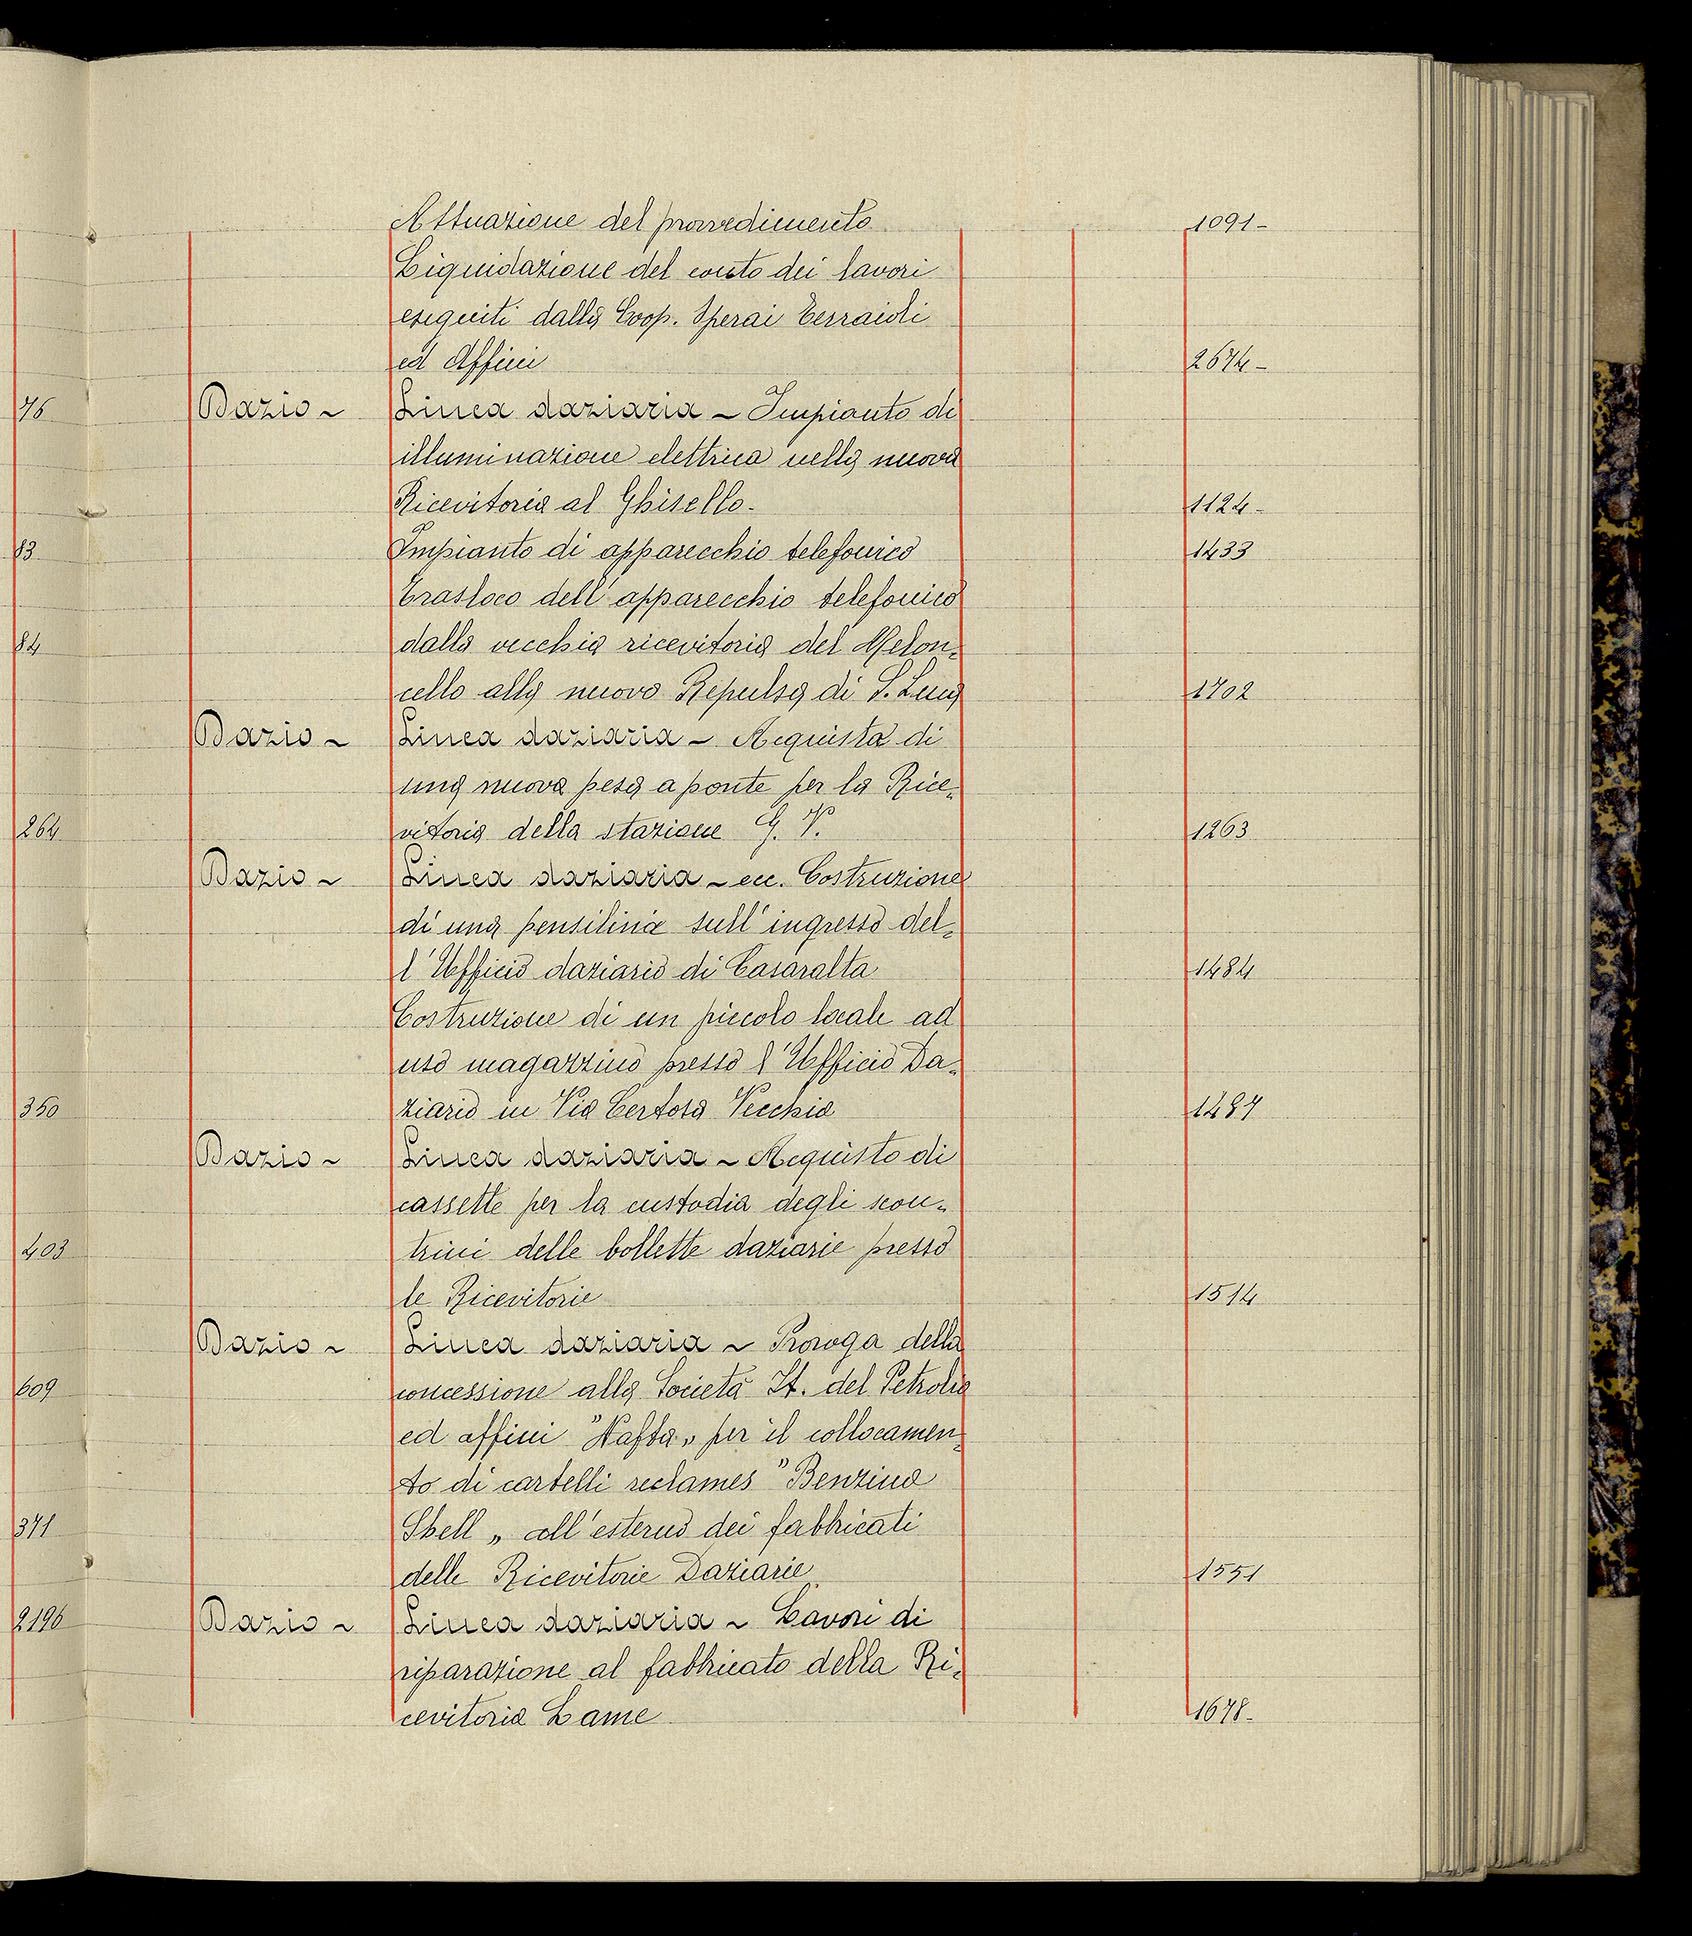 Attuazione del provvedimento 1091-
Liquidazione del conto dei lavori
eseguiti dalla Coop. Operai Terraioli
ed Affini 2674-
76 Dazio ~ Linea daziaria ~ Impianto di
illuminazione elettrica nella nuova
Ricevitoria al Ghisello - 1124-
83 Impianto di apparecchio telefonico 1433
Trasloco dell'apparecchio telefonico
84 dalla vecchia ricevitoria del Melon=
cello alla nuova Repulsa di S. Luca 1702
Dazio ~ Linea daziaria ~ Acquisto di
una nuova pesa a ponte per la Rice=
264 vitoria della stazione G. V. 1263
Dazio ~ Linea daziaria ~ ecc. Costruzione
di una pensilina sull'ingresso del=
l'Ufficio daziario di Casaralta 1484
Costruzione di un piccolo locale ad
uso magazzino presso l'Ufficio Da=
350 ziario in Via Certosa Vecchia 1487
Dazio ~ Linea daziaria ~ Acquisto di
cassette per la custodia degli scon=
403 trini delle bollette daziarie presso
le Ricevitorie 1514
Dazio ~ Linea daziaria ~ Proroga della
609 concessione alla Società It. del Petrolio
ed affini "Nafta" per il collocamen=
to di cartelli reclames "Benzina
371 Shell" all'esterno dei fabbricati
delle Ricevitorie Daziarie 1551
2196 Dazio ~ Linea daziaria ~ Lavori di
riparazione al fabbricato della Ri=
cevitoria Lame 1678-